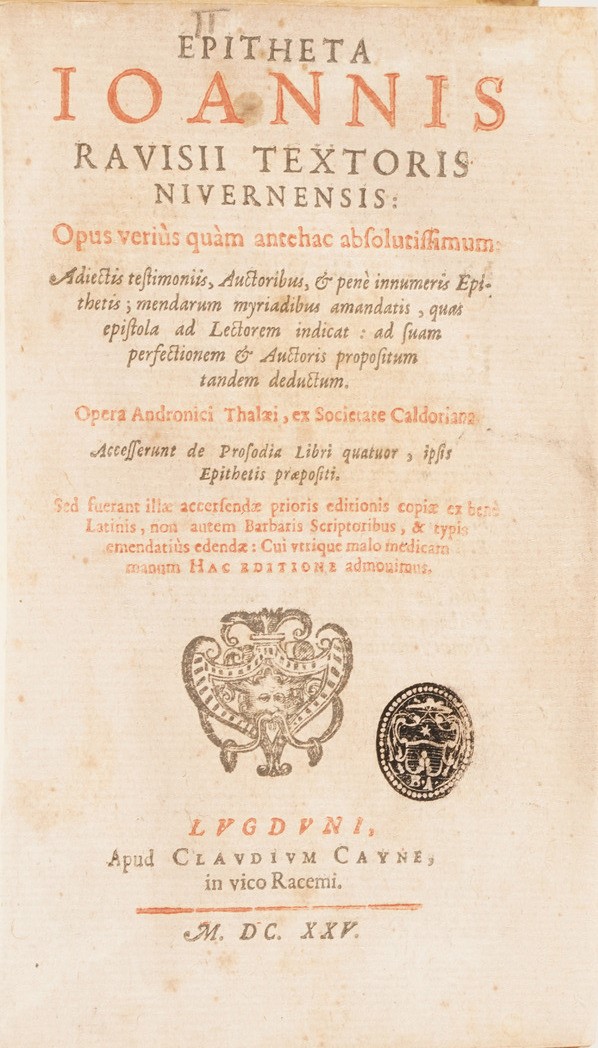 II
EPITHETA
IOANNIS
RAVISII TEXTORIS
NIVERNENSIS:
Opus veriùs quàm antehac absolutissimum:
Adiectis testimoniis, Auctoribus, & penè innumeris Epi-
thetis ; mendarum myriadibus amandatis , quas
epistola ad Lectorem indicat : ad suam
perfectionem & Auctoris propositum
tandem deductum.
Opera Andronici Thalæi , ex Societate Caldoriana
Accesserunt de Prosodia Libri quatuor , ipsis
Epithetis præpositi.
Sed fuerant illæ accersendæ prioris editionis copiæ ex benè
Latinis , non autem Barbaris Scriptoribus, & typis
emendatiùs edendæ : Cui vtrique malo medicam
manum HAC EDITIONE admouimus.
LVGDVNI,
Apud CLAVDIVM CAYNE,
in vico Racemi.
M. DC. XXV.